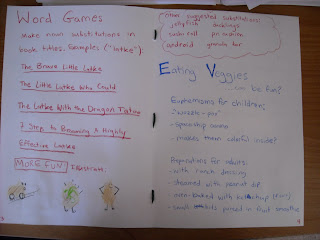 Word Games
Make noun substitutions in
book titles. Examples ("latke"):
The Brave Little Latke
The Little Latke Who Could
The Latke With the Dragon Tattoo
7 Steps to Becoming A Highly
Effective Latke
MORE FUN: Illustrate:
other suggested substitutions:
jellyfish ducklings
cash roll
android granola bar
Eating Veggies
...can be fun?
Euphemisms for children:
- spaceship
- makes them colorful inside!
Preparations for adults:
- with ranch dressing
- steamed with peanut dip
- oven-baked with ketchup
- small pureed in fruit smoothie